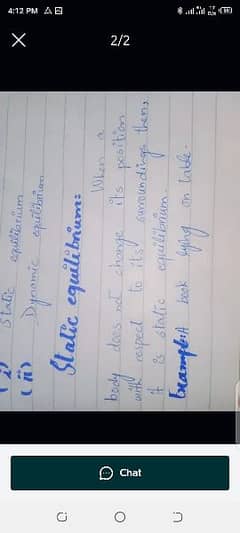 4:12 PM
2/2
(i) Static equilibrium
(ii) Dynamic equilibrium
Static equilibrium:
When a
body does not change its position
with respect to its surroundings then,
it is static equilibrium.
Example:A book lying on table.
Chat